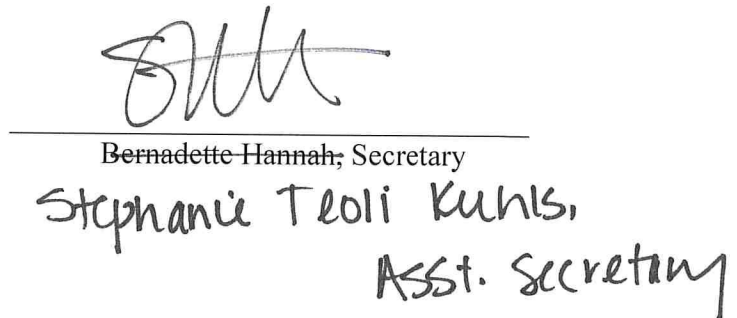 Bernadette Hannah, Secretary
Stephanie Teoli Kuhls,
Asst. Secretary